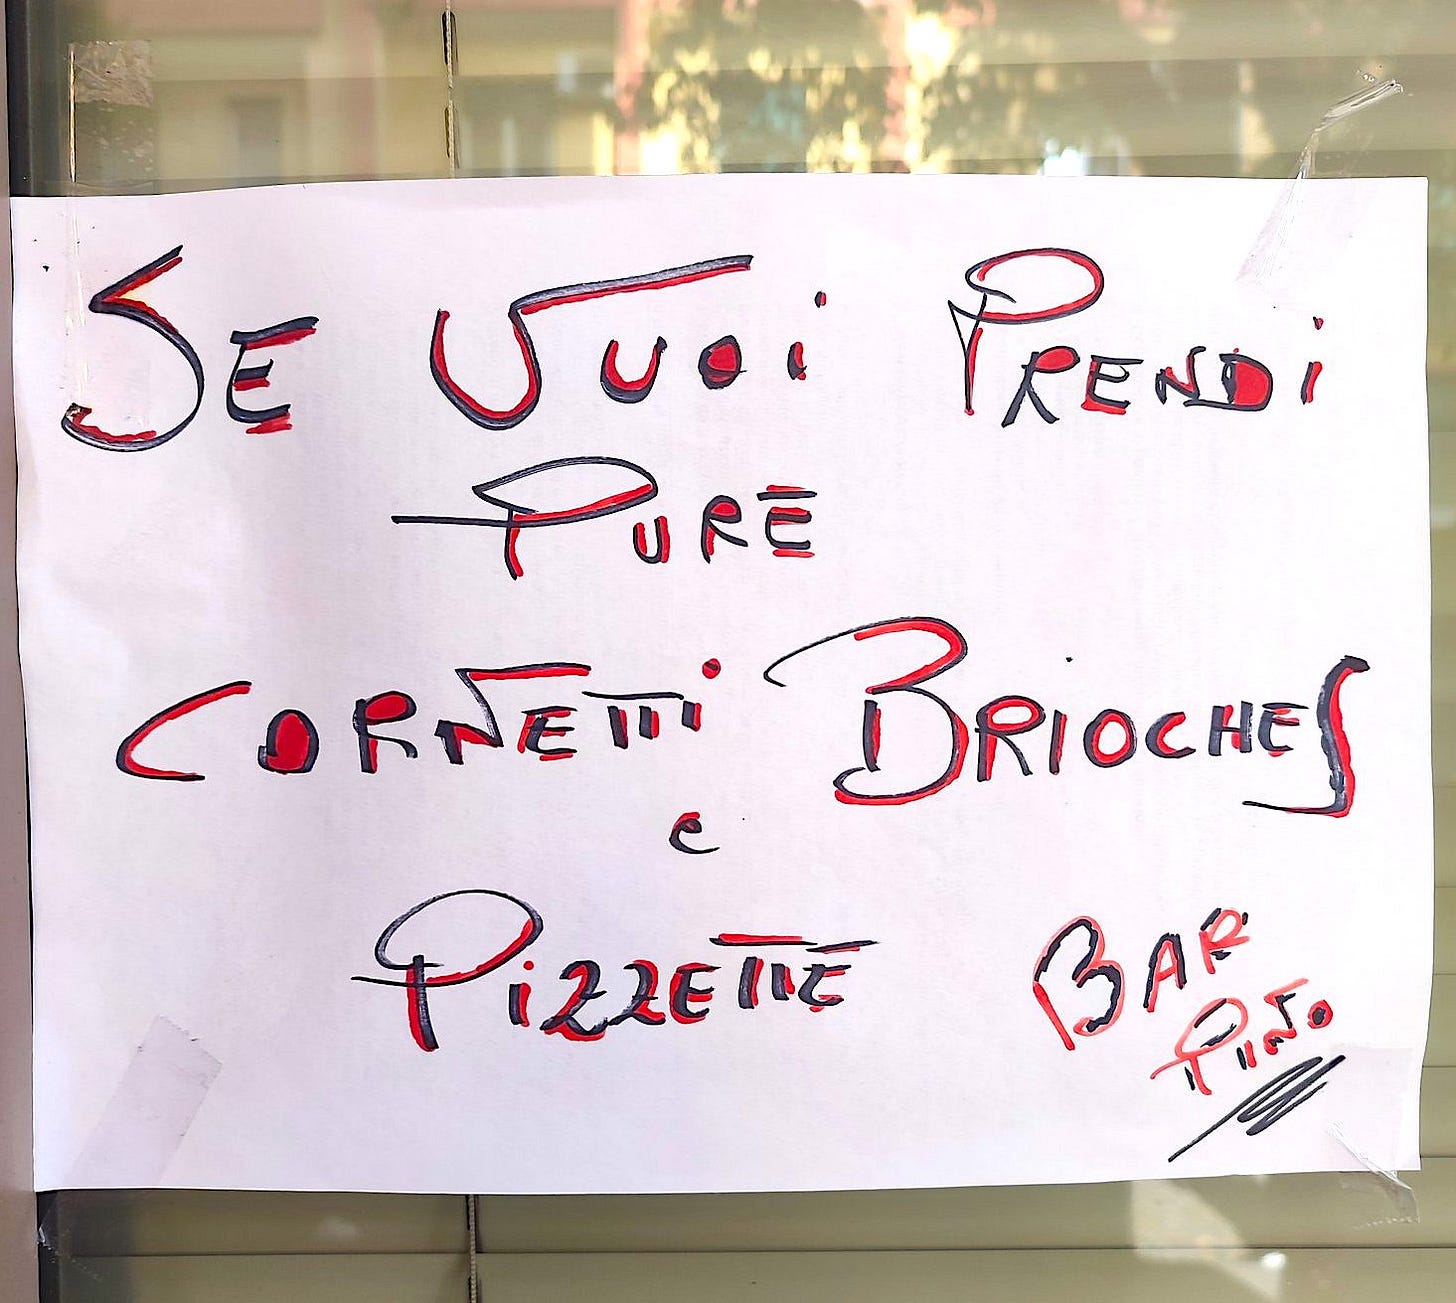 SE VUOI PRENDI
PURE
CORNETTI BRIOCHES
e
PIZZETTE
BAR
PINO